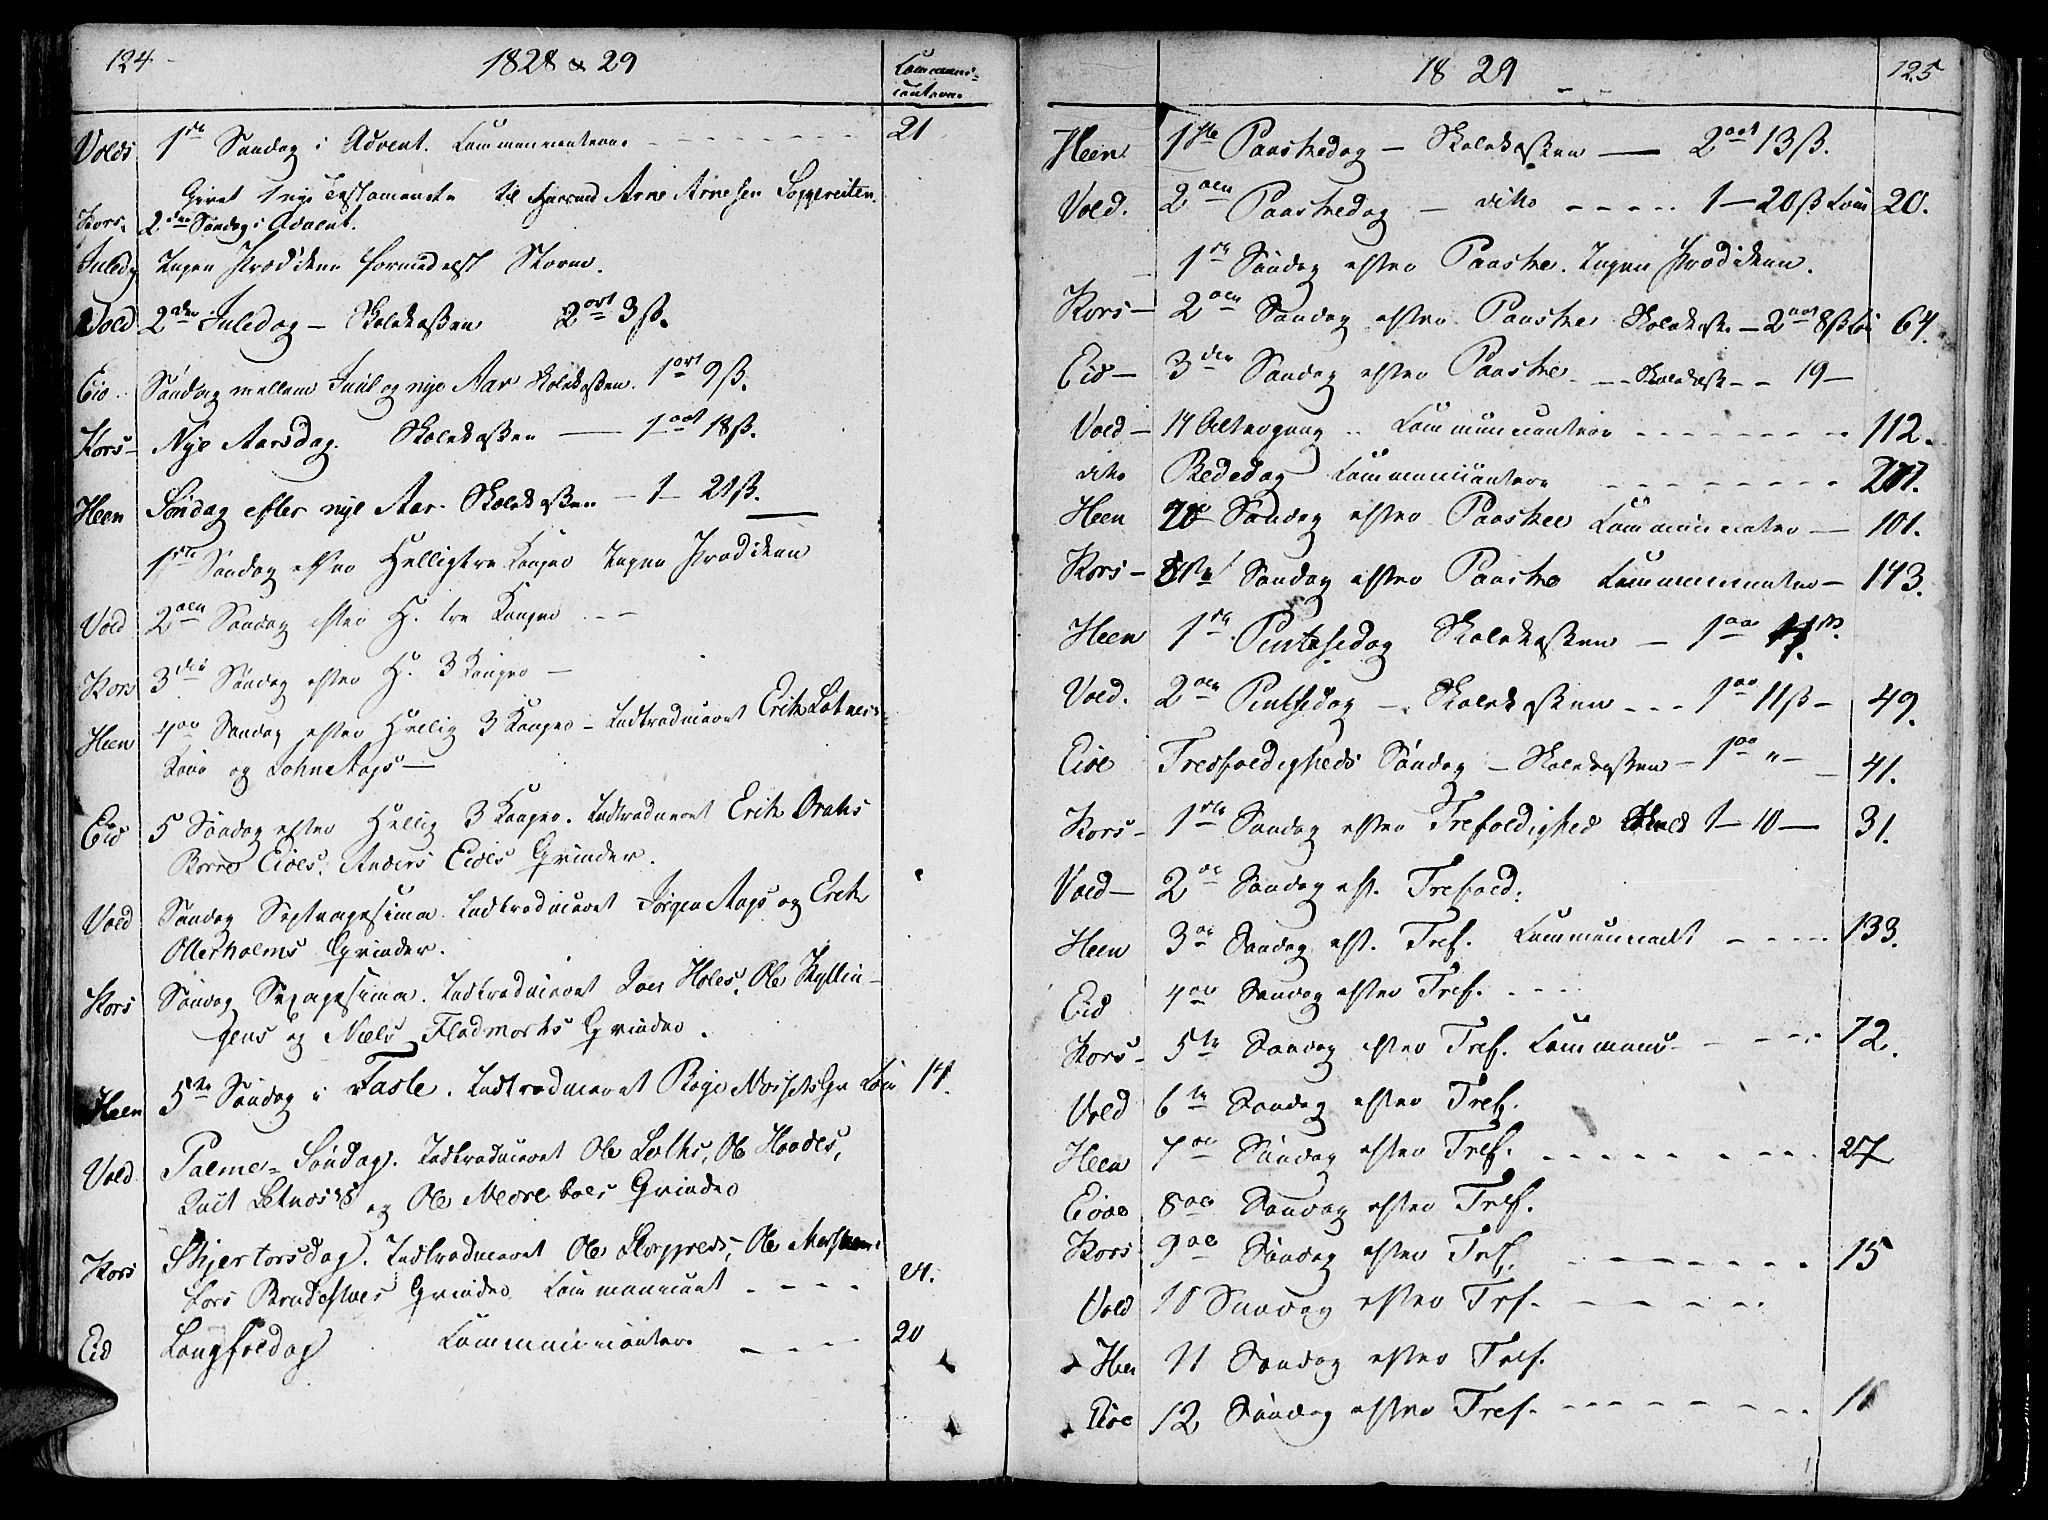 124
1828 & 29
Communi-
cantere.
Volds 1ste Søndag i Advent. Communicantere - - - - - 21
Givet 1 nye Testamente til Arne Arnesen Soggereiten.
Kors. 2den Søndag i Advent.
Juledag Ingen Prædiken formedelst Storm.
Vold 2den Juledag — Skolekassen 2 ort 3 ß.
Eid Søndag mellem Juul og nye Aar Skolekassen. 1 ort 9 ß.
Kors — Nye Aarsdag. Skolekassen — 1 ort 18 ß.
Heen Søndag efter nye Aar. Skolekassen — 1 — 21 ß.
1ste Søndag efter Helligtre Konger Ingen Prædiken
Vold 2den Søndag efter H. tre Konger - -
Kors 3die Søndag efter H. 3 Konger —
Heen 4de Søndag efter Hellig 3 Konger — Introduceret Erik Letnes
Kone og John Aags —
Eid 5 Søndag efter Hellig 3 Konger. Introduceret Erik
Eides, Anders Eides Qvinder.
Vold Søndag Septuagesima. Introduceret Jørgen Aags og Erik
Otterholms Qvinder.
Kors Søndag Sexagesima. Introduceret Holes, Ole Kyllin-
gens og Niels Fladmarks Qvinder.
Heen 5te Søndag i Faste. Introduceret Com 14.
Vold Palme-Søndag. Introduceret Ole Ole
Letnes og Ole Qvinder
Kors Skjertorsdag. Introduceret Ole Ole
Lars Qvinder Communicant - - - 21.
Eid Langfredag Communicantere - - - 20
1829
125
Heen 1ste Paaskedag — Skolekassen — 2 ort 13 ß.
Vold. 2den Paaskedag — dito - - - - 1 — 20 ß Com 20.
1ste Søndag efter Paaske. Ingen Prædiken.
Kors — 2den Søndag efter Paaske Skolekass — 2 ort 8 ß Com 64.
Eid — 3die Søndag efter Paaske - - Skolekass - - 19 —
Vold — 14 Altergang .. Communicantere - - - - - 112.
dito Bededag Communicantere - - - - -
Heen Søndag efter Paaske Communicanter — 101.
Kors — Søndag efter Paaske Communicanter — 143.
Heen 1ste Pintsedag Skolekassen — 1 ort
Vold. 2den Pintsedag — Skolekassen - - - 1 ort 11 ß — 49.
Eide Trefoldigheds Søndag — Skolekassen — 1 ort " — 41.
Kors — 1ste Søndag efter Trefoldighed 1 — 10 — 31.
Vold — 2de Søndag eft. Trefold.
Heen 3de Søndag eft. Tref. Communicant - - - 133.
Eid 4de Søndag efter Tref. - - -
Kors — 5te Søndag efter Tref. Communi - - - - 72.
Vold 6te Søndag efter Tref.
Heen 7de Søndag efter Tref. - - - - - - 27
Eide 8de Søndag efter Tref.
Kors 9de Søndag efter Tref. - - - - - 15
Vold 10 Søndag efter Tref. - - - -
Hen 11 Søndag efter Tref.
Eide 12 Søndag efter Tref. - - - - - - 11